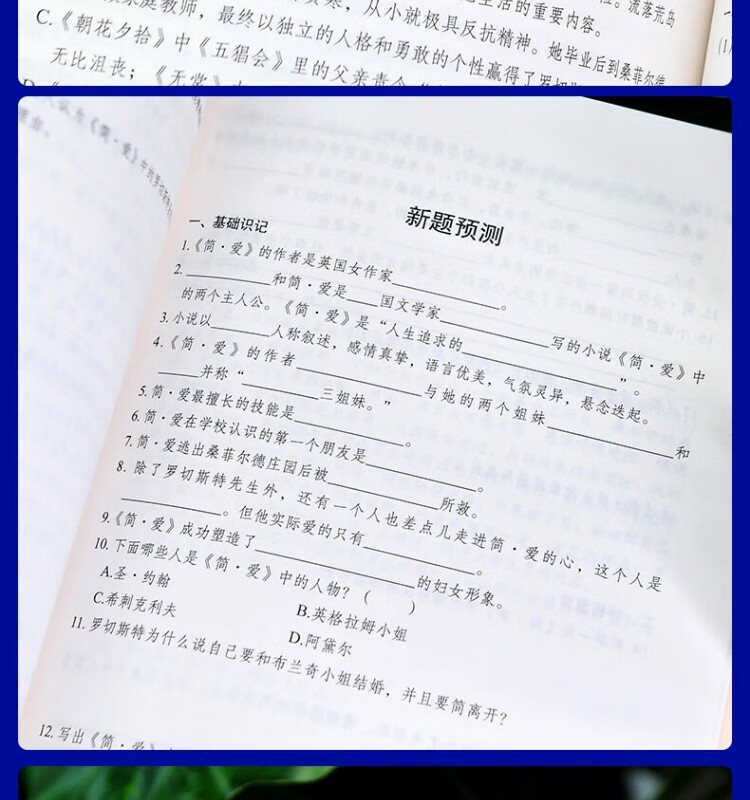 生活的重要内容。
家庭教师，最终以独立的人格和勇敢的个性赢得了罗切斯
从小就极具反抗精神。她毕业后到桑菲尔德
C.《朝花夕拾》中《五猖会》里的父亲责令
无比沮丧；《无常》
新题预测
一、基础识记
1.《简·爱》的作者是英国女作家__________。
2.________和简·爱是____国文学家__________写的小说《简·爱》中
的两个主人公。《简·爱》是“人生追求的______________”。
3.小说以______人称叙述，感情真挚，语言优美，气氛灵异，悬念迭起。
4.《简·爱》的作者____________与她的两个姐妹____________和
____并称“________三姐妹。”
5.简·爱最擅长的技能是__________。
6.简·爱在学校认识的第一个朋友是__________。
7.简·爱逃出桑菲尔德庄园后被__________所救。
8.除了罗切斯特先生外，还有一个人也差点儿走进简·爱的心，这个人是
__________。但他实际爱的只有__________。
9.《简·爱》成功塑造了______________的妇女形象。
10.下面哪些人是《简·爱》中的人物？（ ）
A.圣·约翰
B.英格拉姆小姐
C.希刺克利夫
D.阿黛尔
11.罗切斯特为什么说自己要和布兰奇小姐结婚，并且要简离开？
12.写出《简·爱》